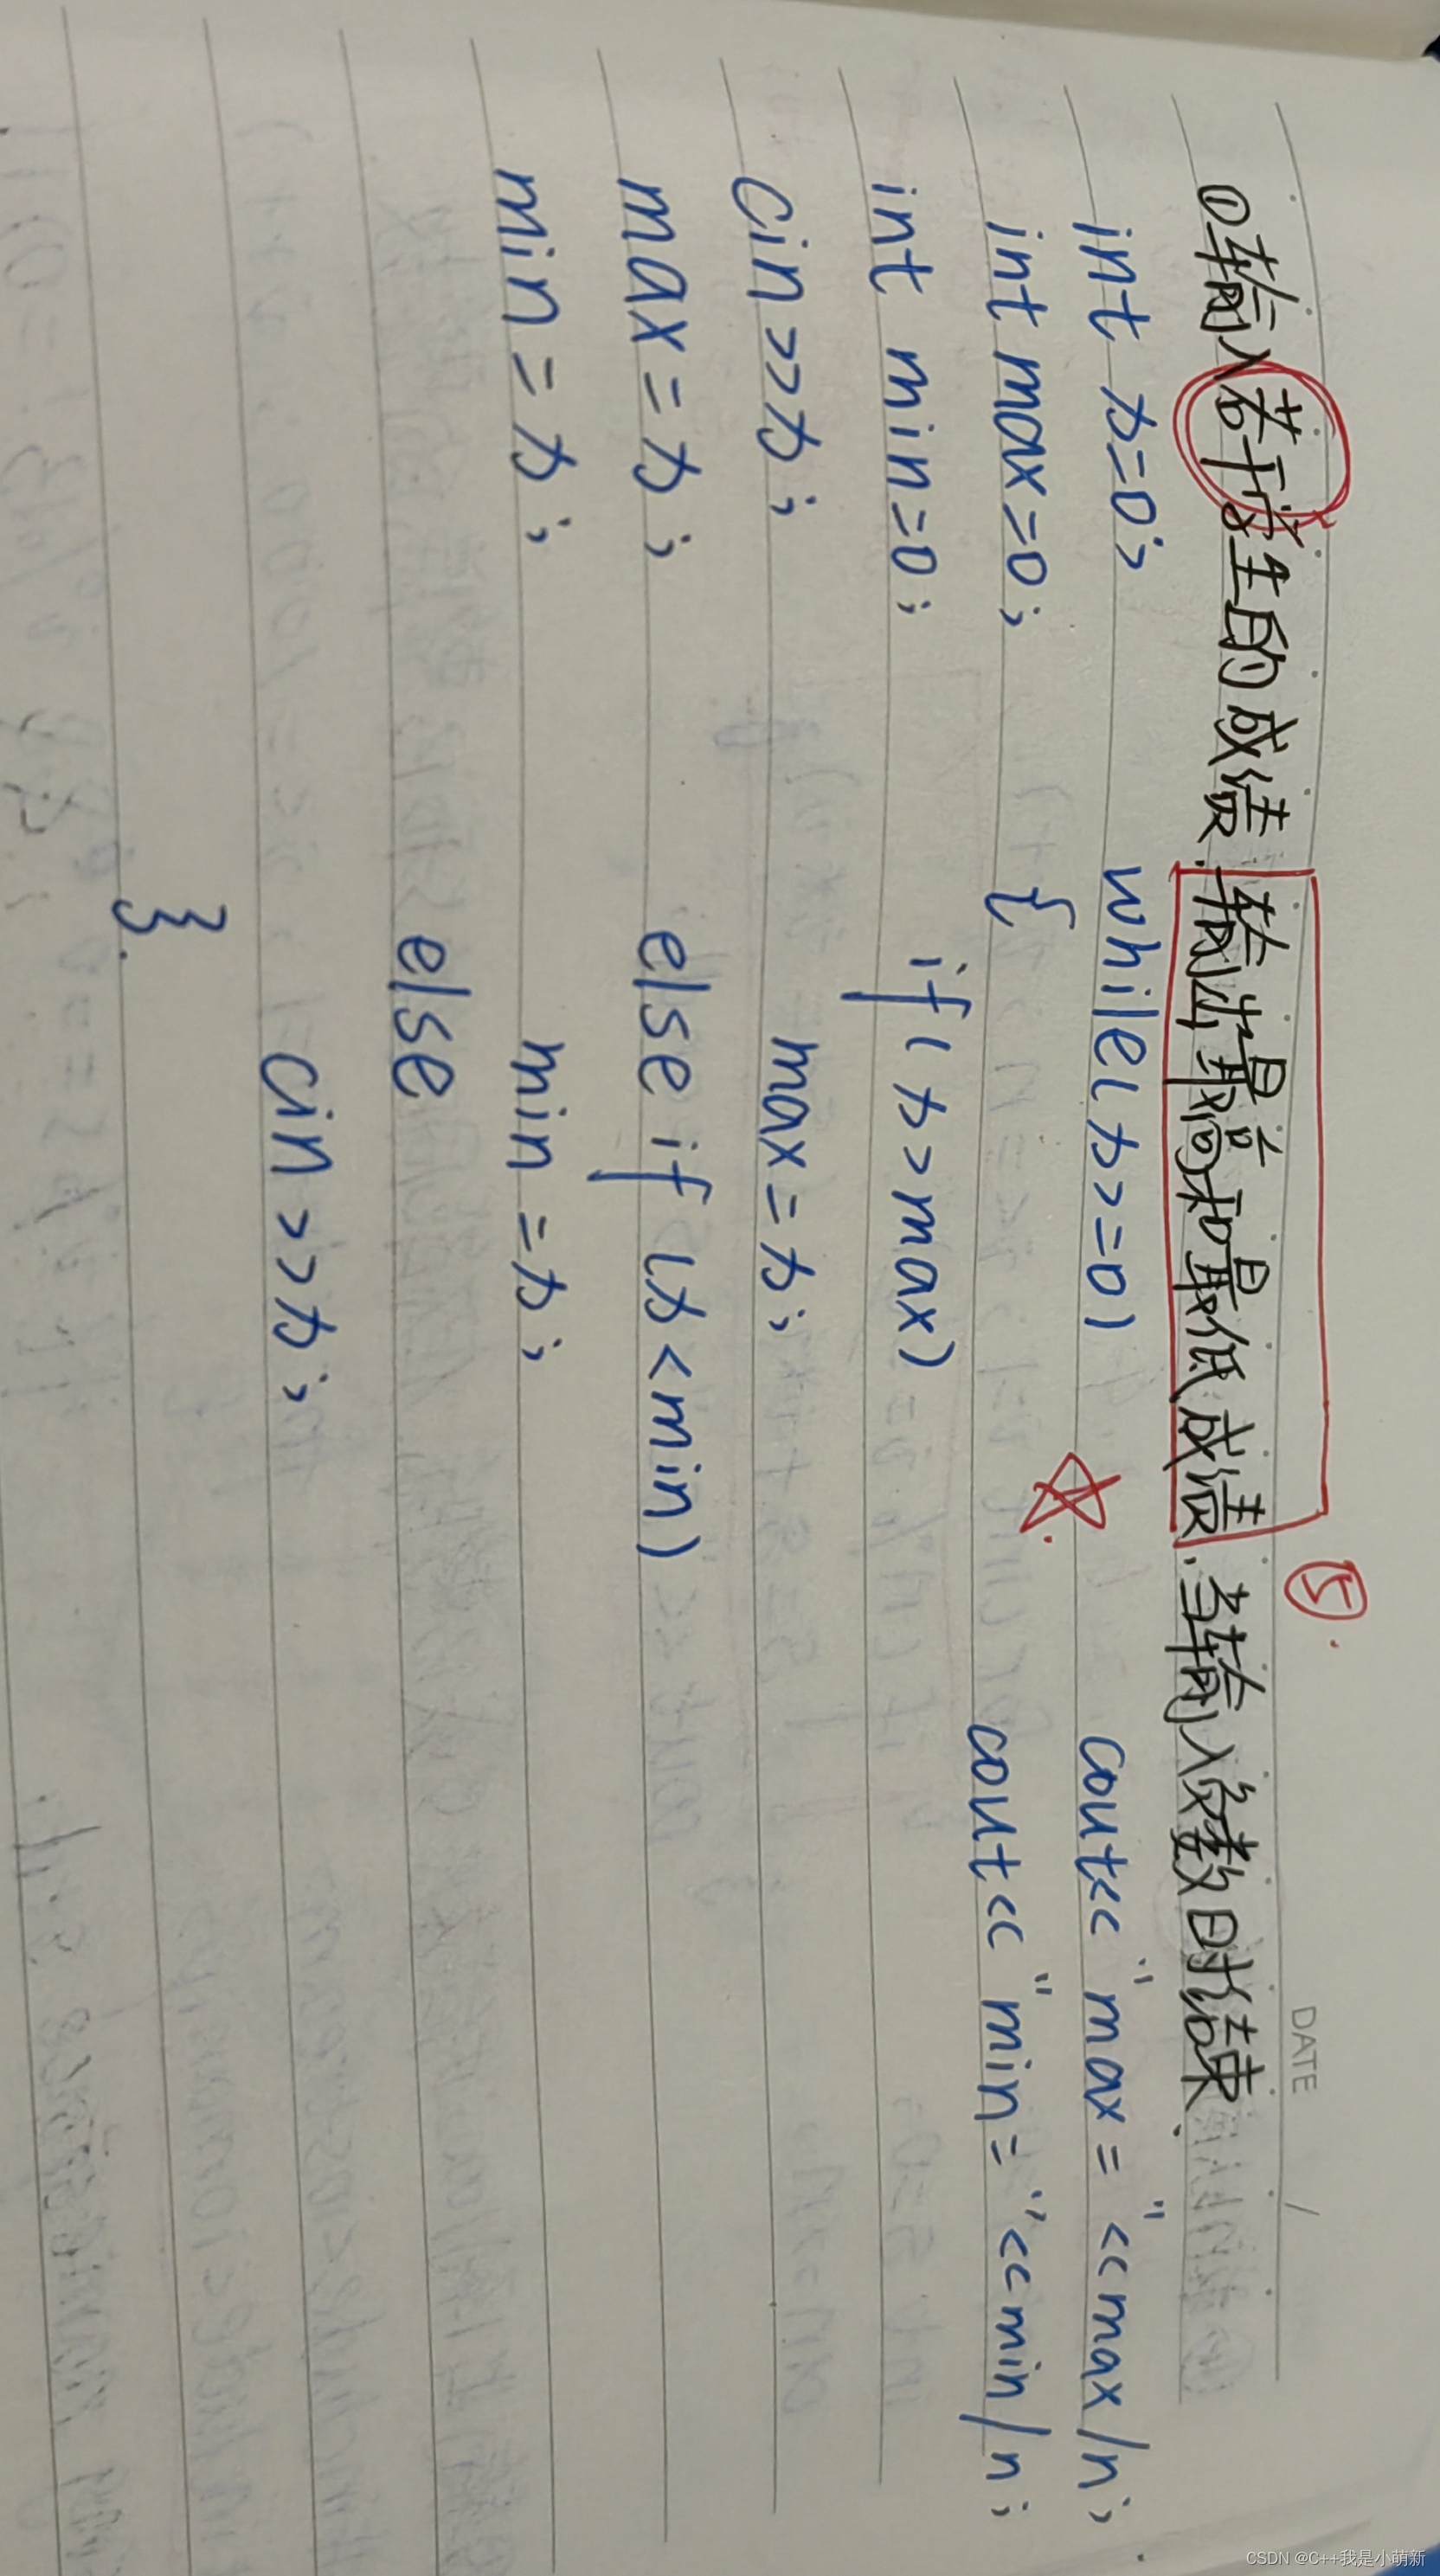 DATE /
⑤.
①输入若干学生的成绩.输出最高和最低成绩.当输入负数时结束.
int s=0;
int max=0;
int min=0;
cin>>s;
max=s;
min=s;
while(s>=0)
{
if(s>max)
max=s;
else if(s<min)
min=s;
else
cin>>s;
}.
cout<<"max="<<max/n;
cout<<"min="<<min/n;
CSDN @C++我是小萌新